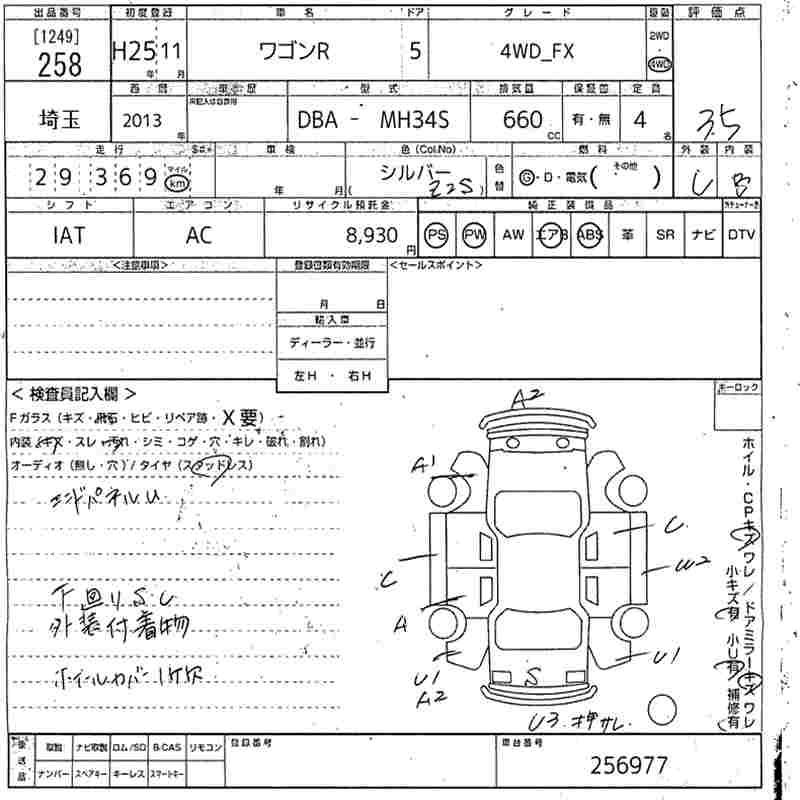 出品番号 初度登録 車名 ドア グレード 駆動 評価点
[1249]
258 H25年 11月 ワゴンR 5 4WD_FX 2WD 4WD 3.5
西暦 車歴 型式 排気量 保証書 定員
埼玉 2013年 DBA - MH34S 660cc 有・無 4名
走行 車検 色(Col.No) 燃料 外装 内装
29369 マイル km 年 月 シルバー (Z2S) 色替 G・D・電気( その他 ) C B
シフト エアコン リサイクル預託金 純正装備品
IAT AC 8,930円 PS PW AW エアB ABS 革 SR ナビ DTV
<注意事項> 登録書類有効期限 <セールスポイント>
月 日
輸入車
ディーラー・並行
左H ・ 右H
<検査員記入欄> キーロック
Fガラス(キズ・飛石・ヒビ・リペア跡・X要)
内装(キズ・スレ・汚れ・シミ・コゲ・穴・キレ・破れ・割れ)
オーディオ(無し・穴)/タイヤ(スタッドレス)
エンドパネルU
下回りS.U
外装付着物
ホイールカバー1枚欠
A2
A1
C
A
U1
A2
U
W2
U1
S
U3.押サレ.
ホイル・CPキズワレ/ドアミラーキズワレ
小キズ有 小U有 補修有
後送品 取説 ナビ取説 ロム/SD B-CAS リモコン 登録番号 車台番号
ナンバー スペアキー キーレス スマートキー 256977